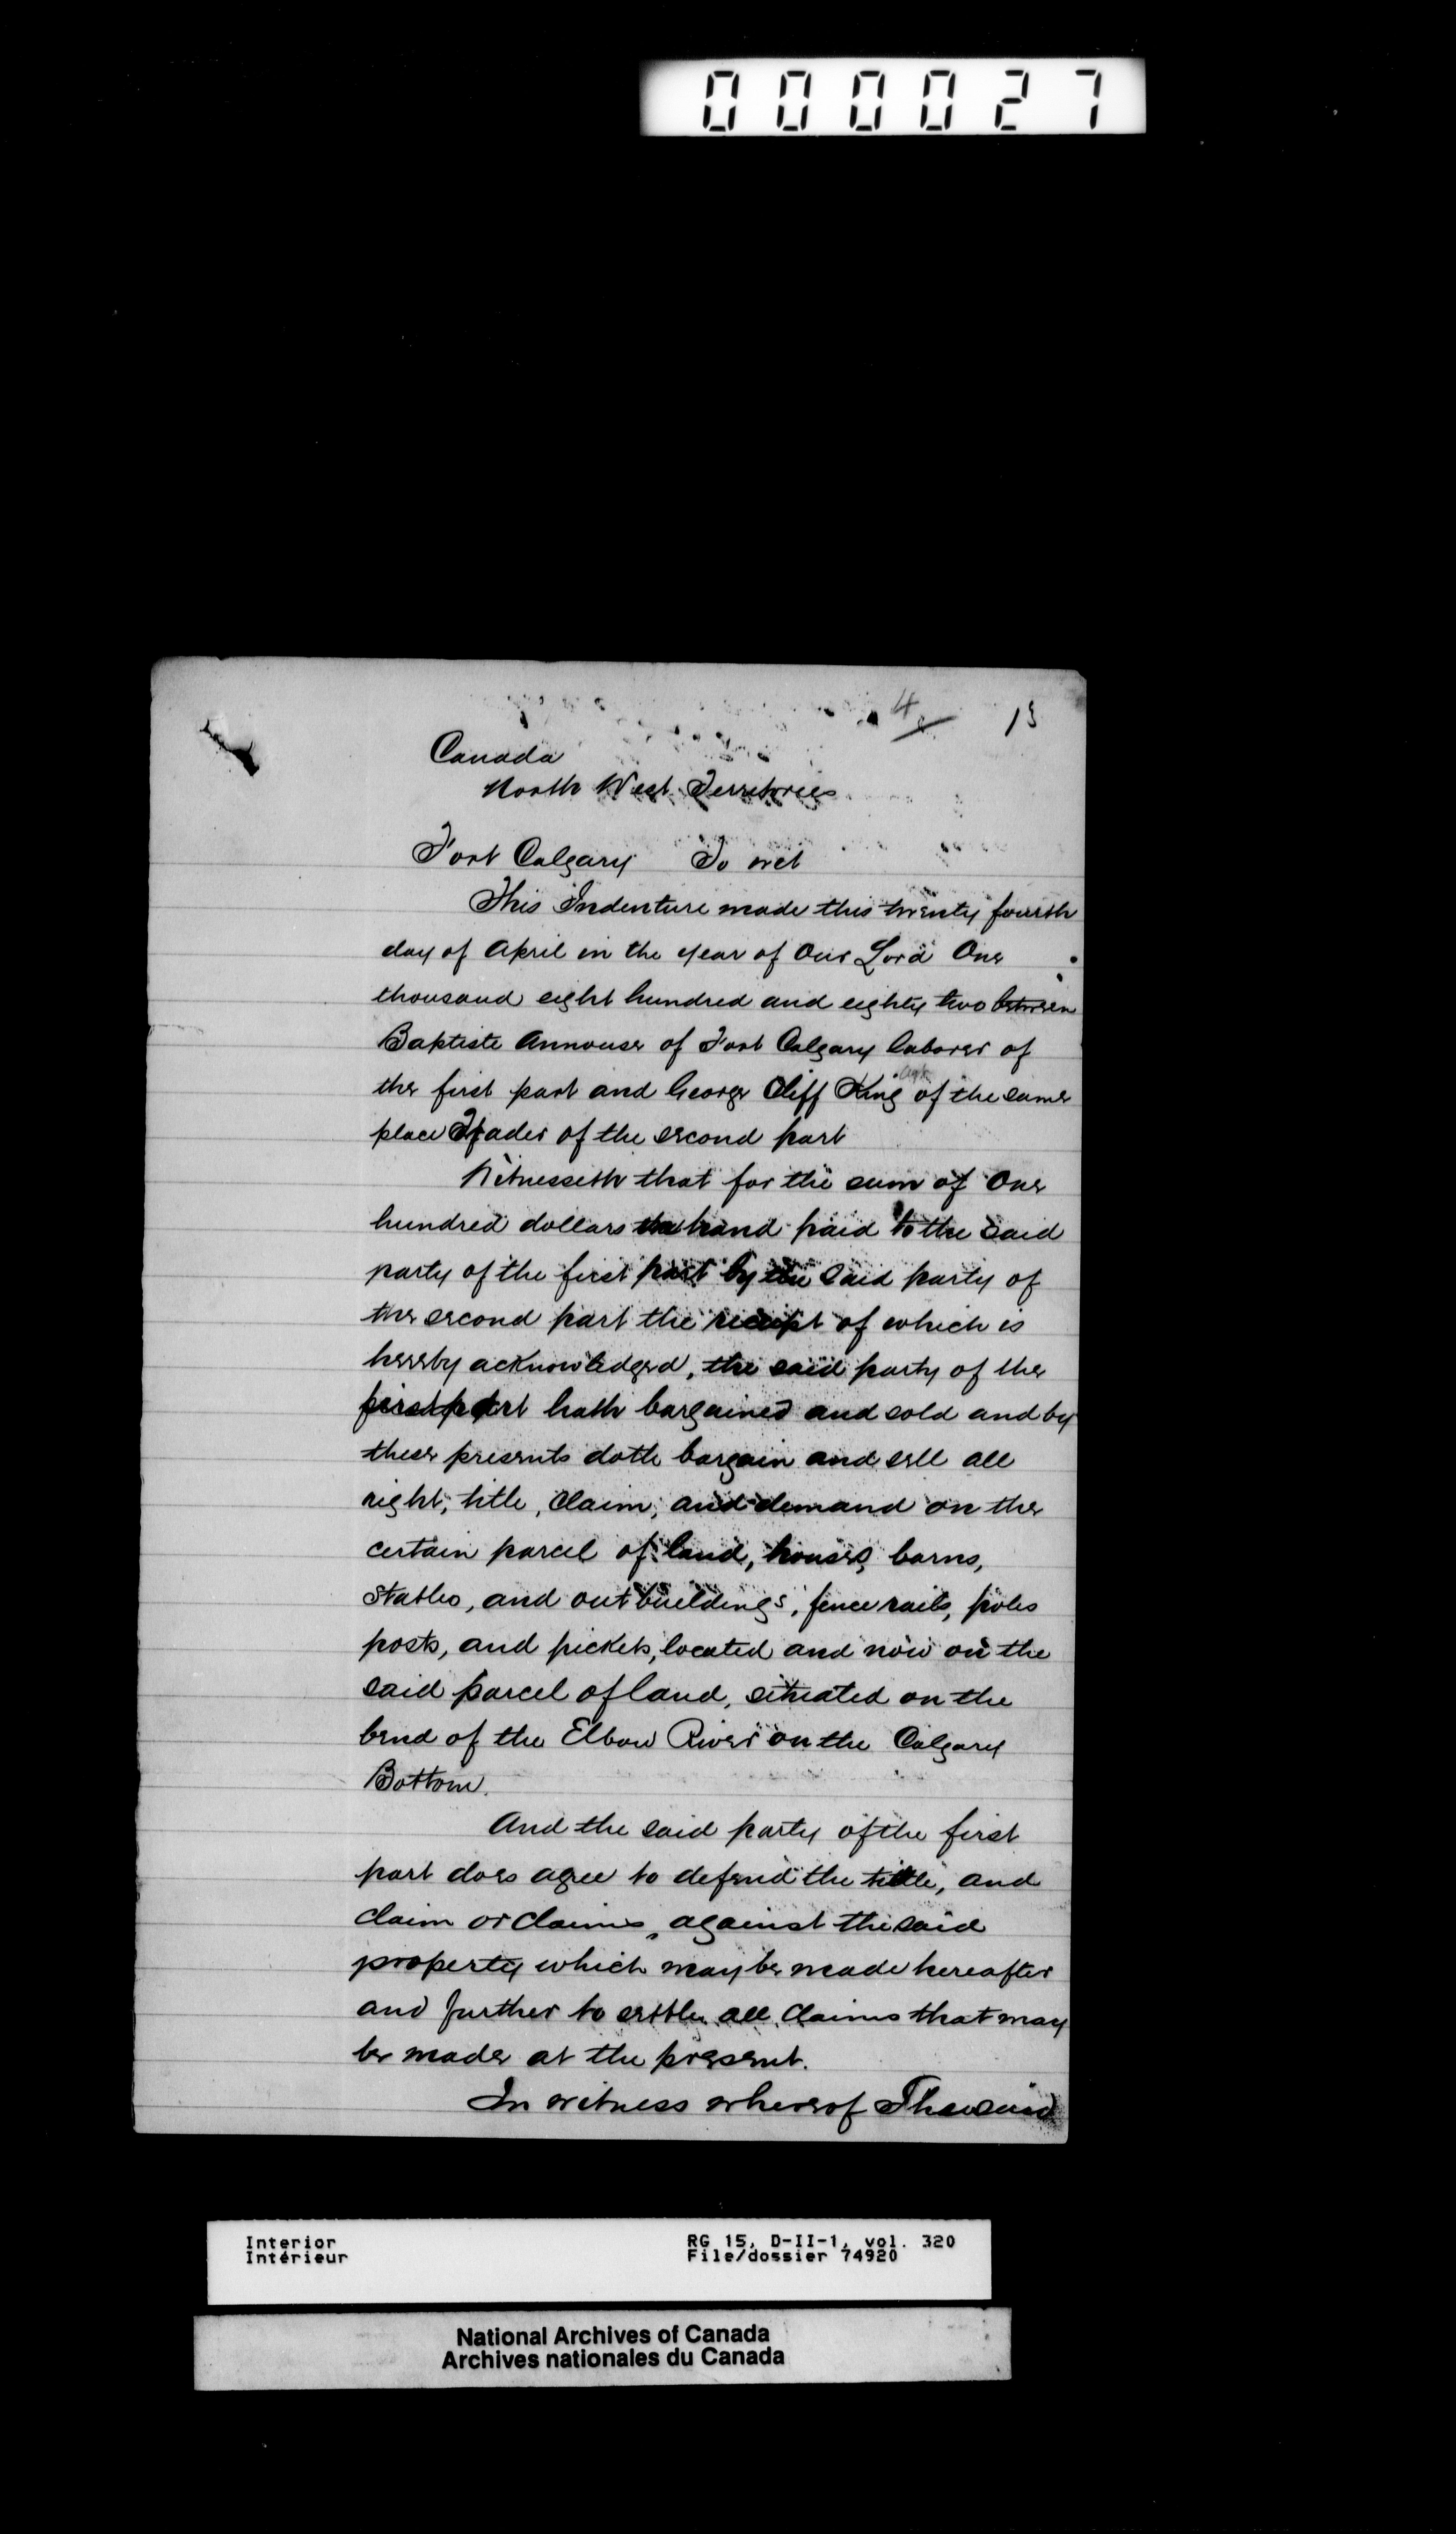 000027
4 13
Canada
North West Territories
Fort Calgary To wit
This Indenture made this twenty fourth
day of April in the year of Our Lord One
thousand eight hundred and eighty two between
Baptiste Annouse of Fort Calgary laborer of
the first part and George Cliff King of the same
place Trader of the second part
Witnesseth that for the sum of One
hundred dollars hand paid to the said
party of the first part by the said party of
the second part the receipt of which is
hereby acknowledged, the said party of the
first part hath bargained and sold and by
these presents doth bargain and sell all
right, title, claim, and demand on the
certain parcel of land, houses, barns,
stables, and outbuildings, fence rails, poles
posts, and pickets, located and now on the
said parcel of land, situated on the
bend of the Elbow River on the Calgary
Bottom.
And the said party of the first
part does agree to defend the title, and
claim or claims, against the said
property which may be made hereafter
and further to settle all claims that may
be made at the present.
In witness whereof The said
Interior RG 15, D-II-1, vol. 320
Intérieur File/dossier 74920
National Archives of Canada
Archives nationales du Canada